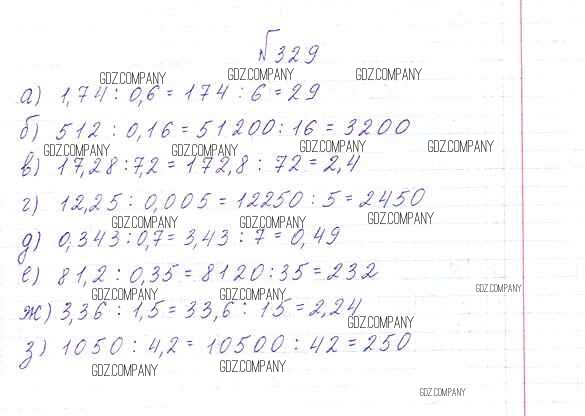 №329
GDZ.COMPANY GDZ.COMPANY GDZ.COMPANY
а) 1,74 : 0,6 = 174 : 6 = 29
б) 512 : 0,16 = 51200 : 16 = 3200
GDZ.COMPANY GDZ.COMPANY GDZ.COMPANY GDZ.COMPANY
в) 17,28 : 7,2 = 172,8 : 72 = 2,4
г) 12,25 : 0,005 = 12250 : 5 = 2450
GDZ.COMPANY GDZ.COMPANY GDZ.COMPANY
д) 0,343 : 0,7 = 3,43 : 7 = 0,49
е) 81,2 : 0,35 = 8120 : 35 = 232
GDZ.COMPANY GDZ.COMPANY GDZ.COMPANY
ж) 3,36 : 1,5 = 33,6 : 15 = 2,24
GDZ.COMPANY
з) 1050 : 4,2 = 10500 : 42 = 250
GDZ.COMPANY GDZ.COMPANY
GDZ.COMPANY